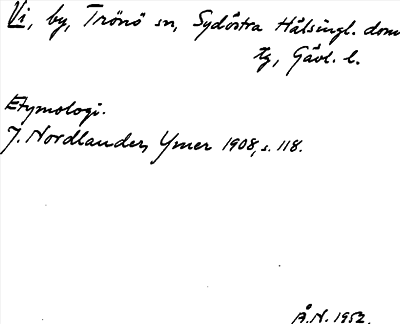 Vi, by, Trönö sn, Sydöstra Hälsingl. doms
tg, Gävl. l.
Etymologi.
J. Nordlander, Ymer 1908, s. 118.
Å.N. 1952.